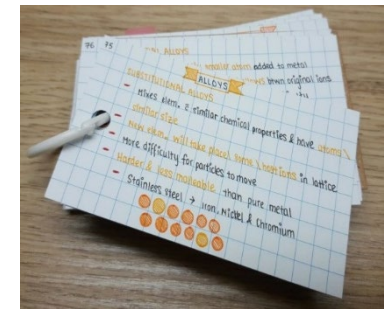 76 75
ALLOYS
smaller atoms added to metal
ALLOYS
btwn original ions
SUBSTITUTIONAL ALLOYS
- Mixes elem. c̄ similar chemical properties & have atoms \
similar size
- New elem. will take place/ ions \ in lattice
- More difficulty for particles to move
- Harder & less malleable than pure metal
- Stainless steel → Iron, Nickel & Chromium